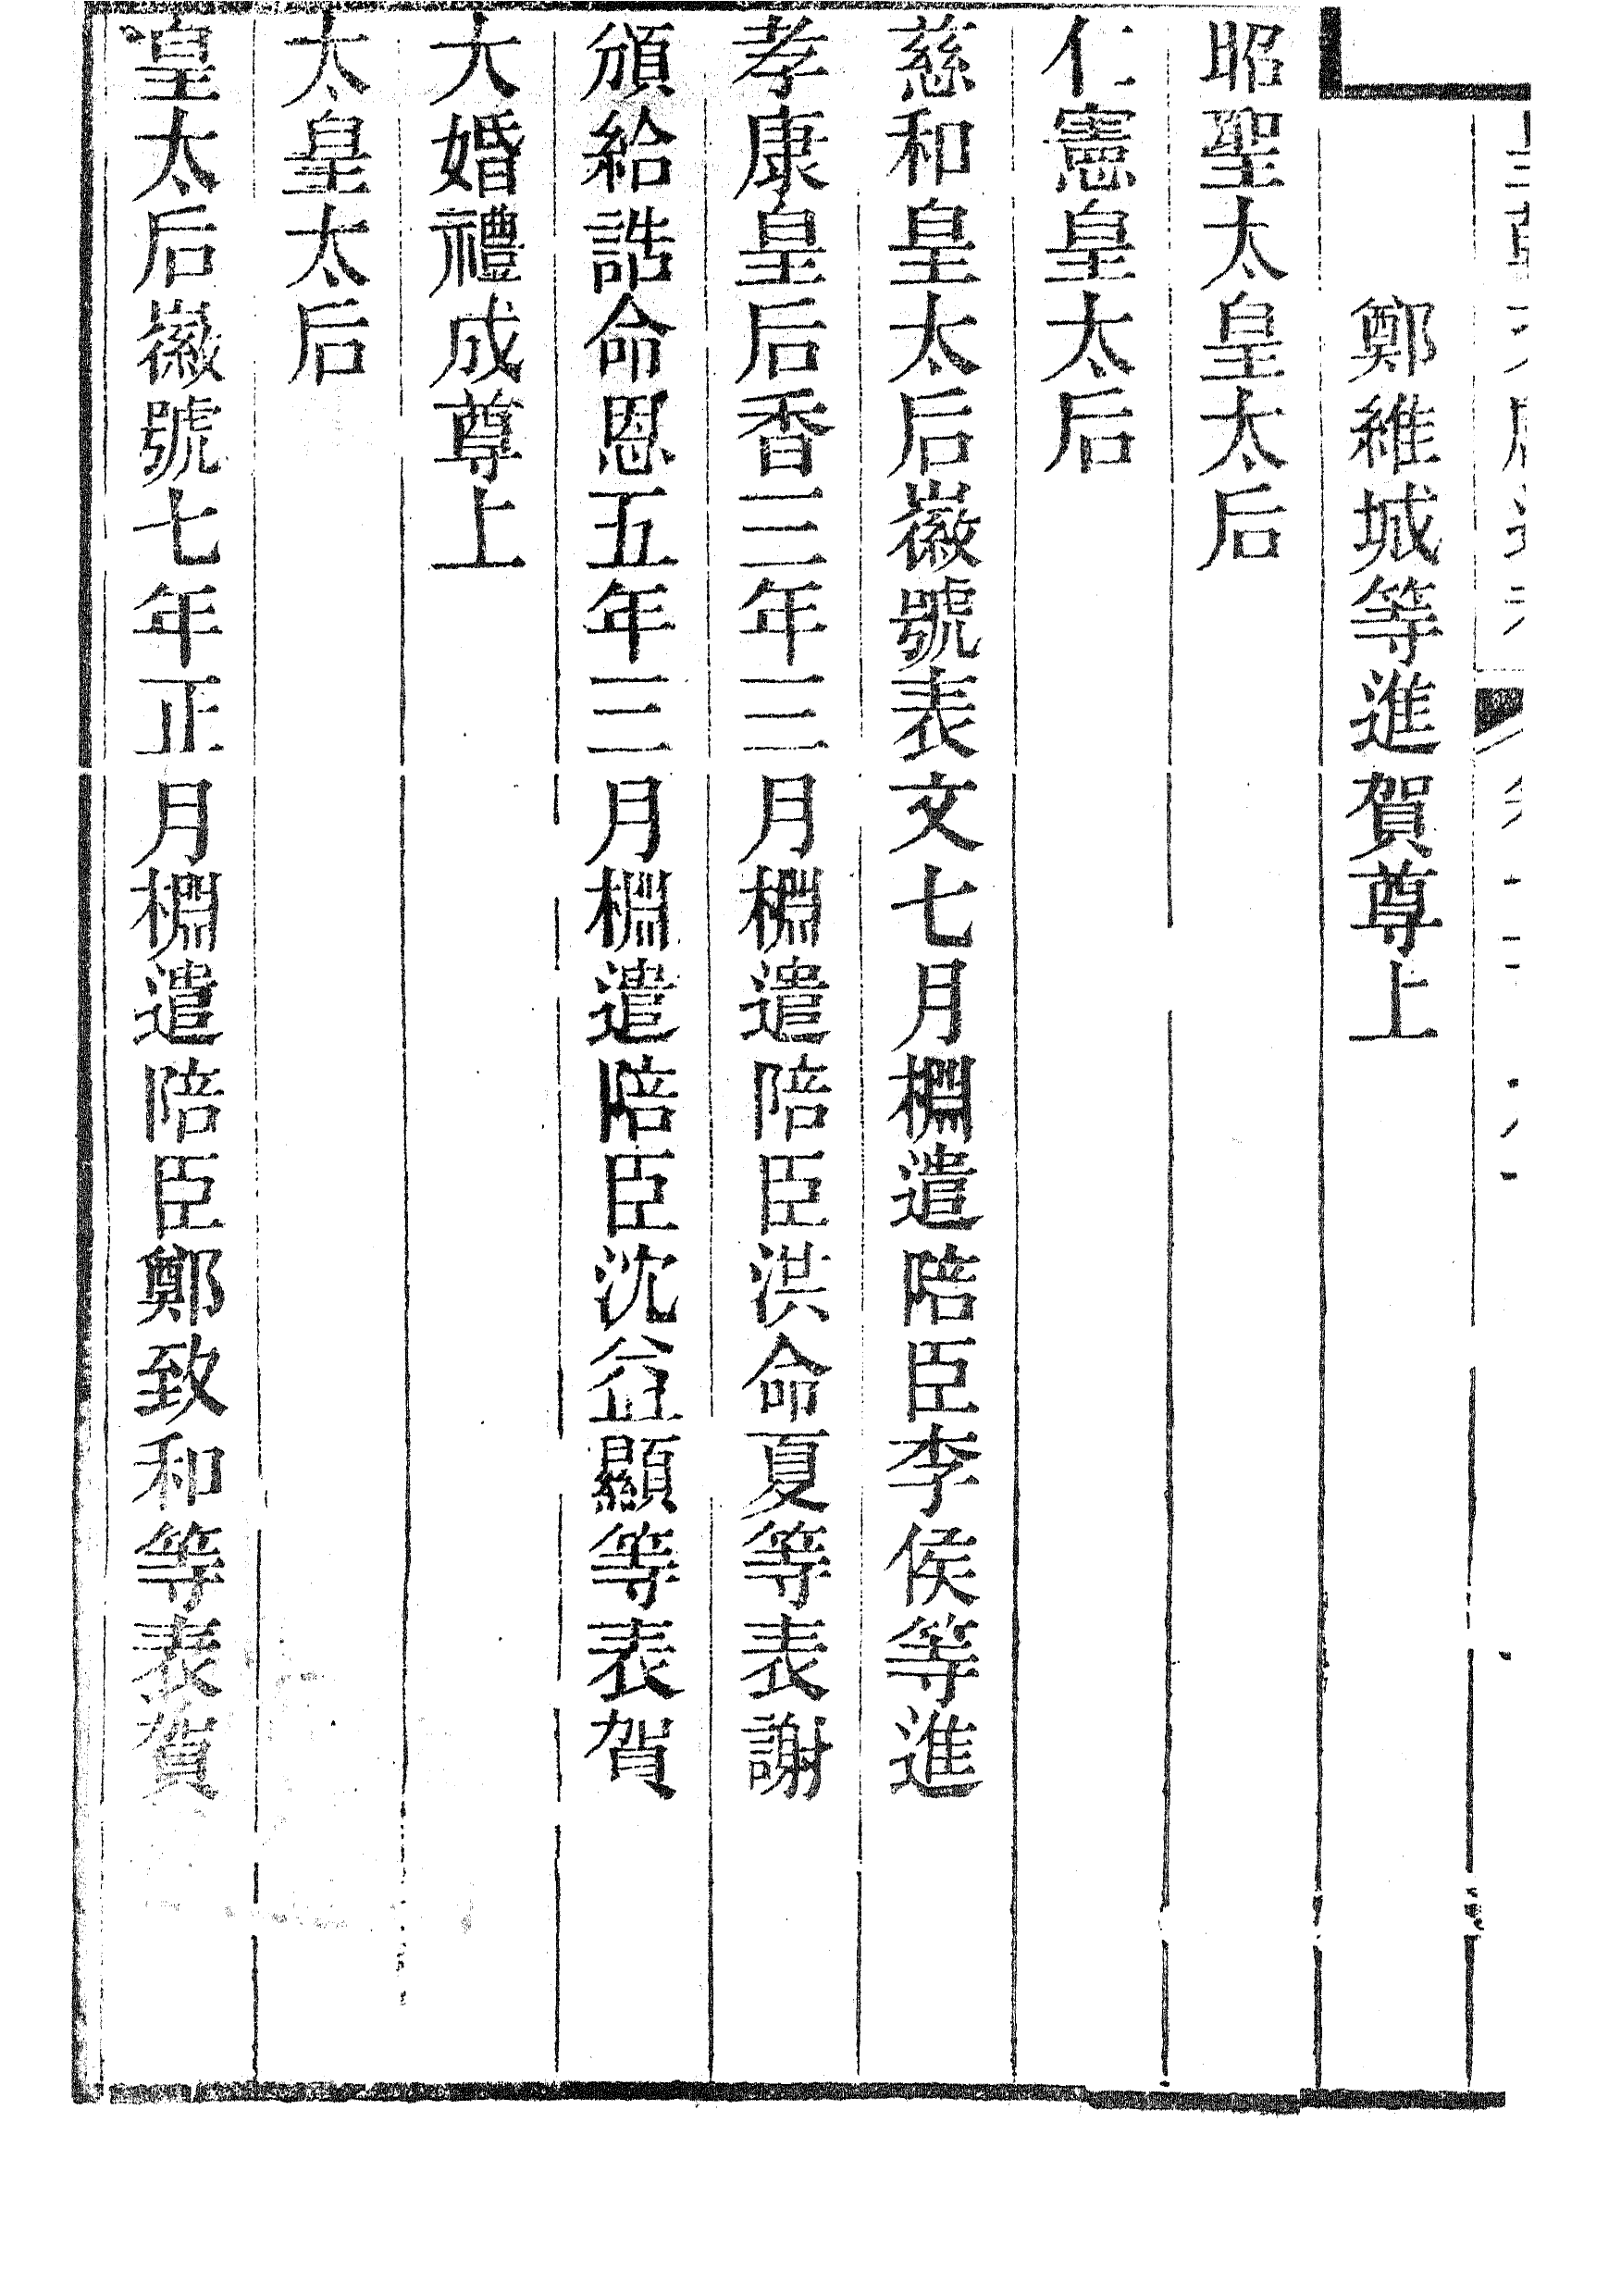 鄭維城等進賀尊上
昭聖太皇太后
仁憲皇太后
慈和皇太后徽號表文七月棩遣陪臣李侯等進
孝康皇后香三年三月棩遣陪臣洪命夏等表謝
頒給誥命恩五年三月棩遣陪臣沈益顯等表賀
大婚禮成尊上
太皇太后
皇太后徽號七年正月棩遣陪臣鄭致和等表賀